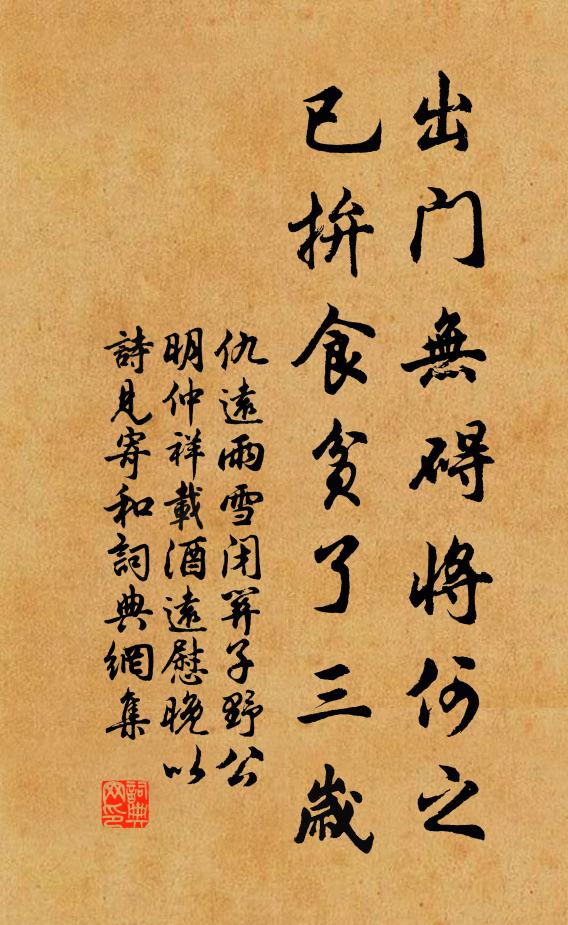 出門無碍將何之
已拚食貧了三歲
仇遠雨雪閉子野公
明仲祥載酒遠慰晚以
詩見寄和詞典網集
詞典
网印